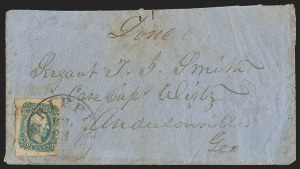 Done
Sergant T. J. Smith
Care Capt Wirtz
Andersonville
Geo